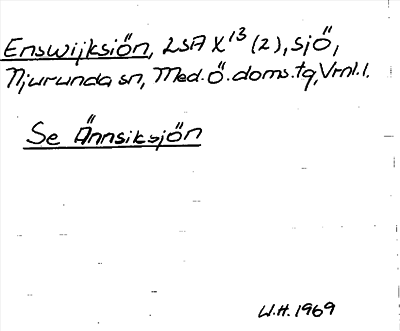 Enswijksiön, LSA X¹³ (2), sjö,
Njurunda sn, Med.Ö.doms.tg, Vrnl.l.
Se Ännsiksjön
W.H. 1969